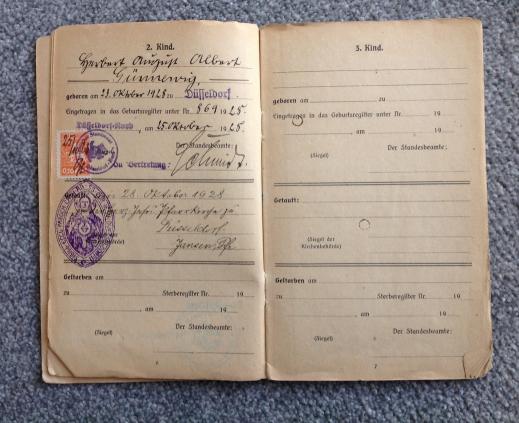 2. Kind.
Herbert August Albert
Günnewig,
geboren am 23. Oktober 1928 zu Düsseldorf.
Eingetragen in das Geburtsregister unter Nr. 869 19 28.
Düsseldorf-Nord, am 25. Oktober 19 28.
Der Standesbeamte:
In Vertretung: Schmidt.
Getauft: den 28. Oktober 1928
Herz Jesu Pfarrkirche zu
Düsseldorf
Jansen, Pfr
Gestorben am
zu Sterberegister Nr. 19
, am 19
Der Standesbeamte:
(Siegel)
6
3. Kind.
geboren am zu
Eingetragen in das Geburtsregister unter Nr. 19
, am 19
Der Standesbeamte:
(Siegel)
Getauft:
(Siegel der
Kirchenbehörde)
Gestorben am
zu Sterberegister Nr. 19
, am 19
Der Standesbeamte:
(Siegel)
7